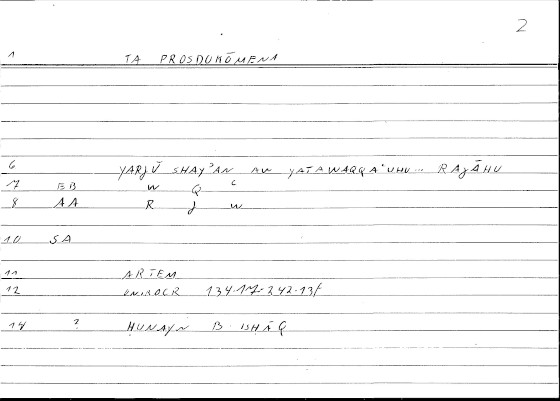 2
1 TA PROSDOKŌMENA
6 YARJŪ SHAYʾAN AW YATAWAQQAʿUHU ... RAJĀHU
7 BB W Q ʿ
8 AA R J W
10 SA
11 ARTEM
12 ONIROCR 134.17-242.13f
14 ? ḤUNAYN B ISḤĀQ